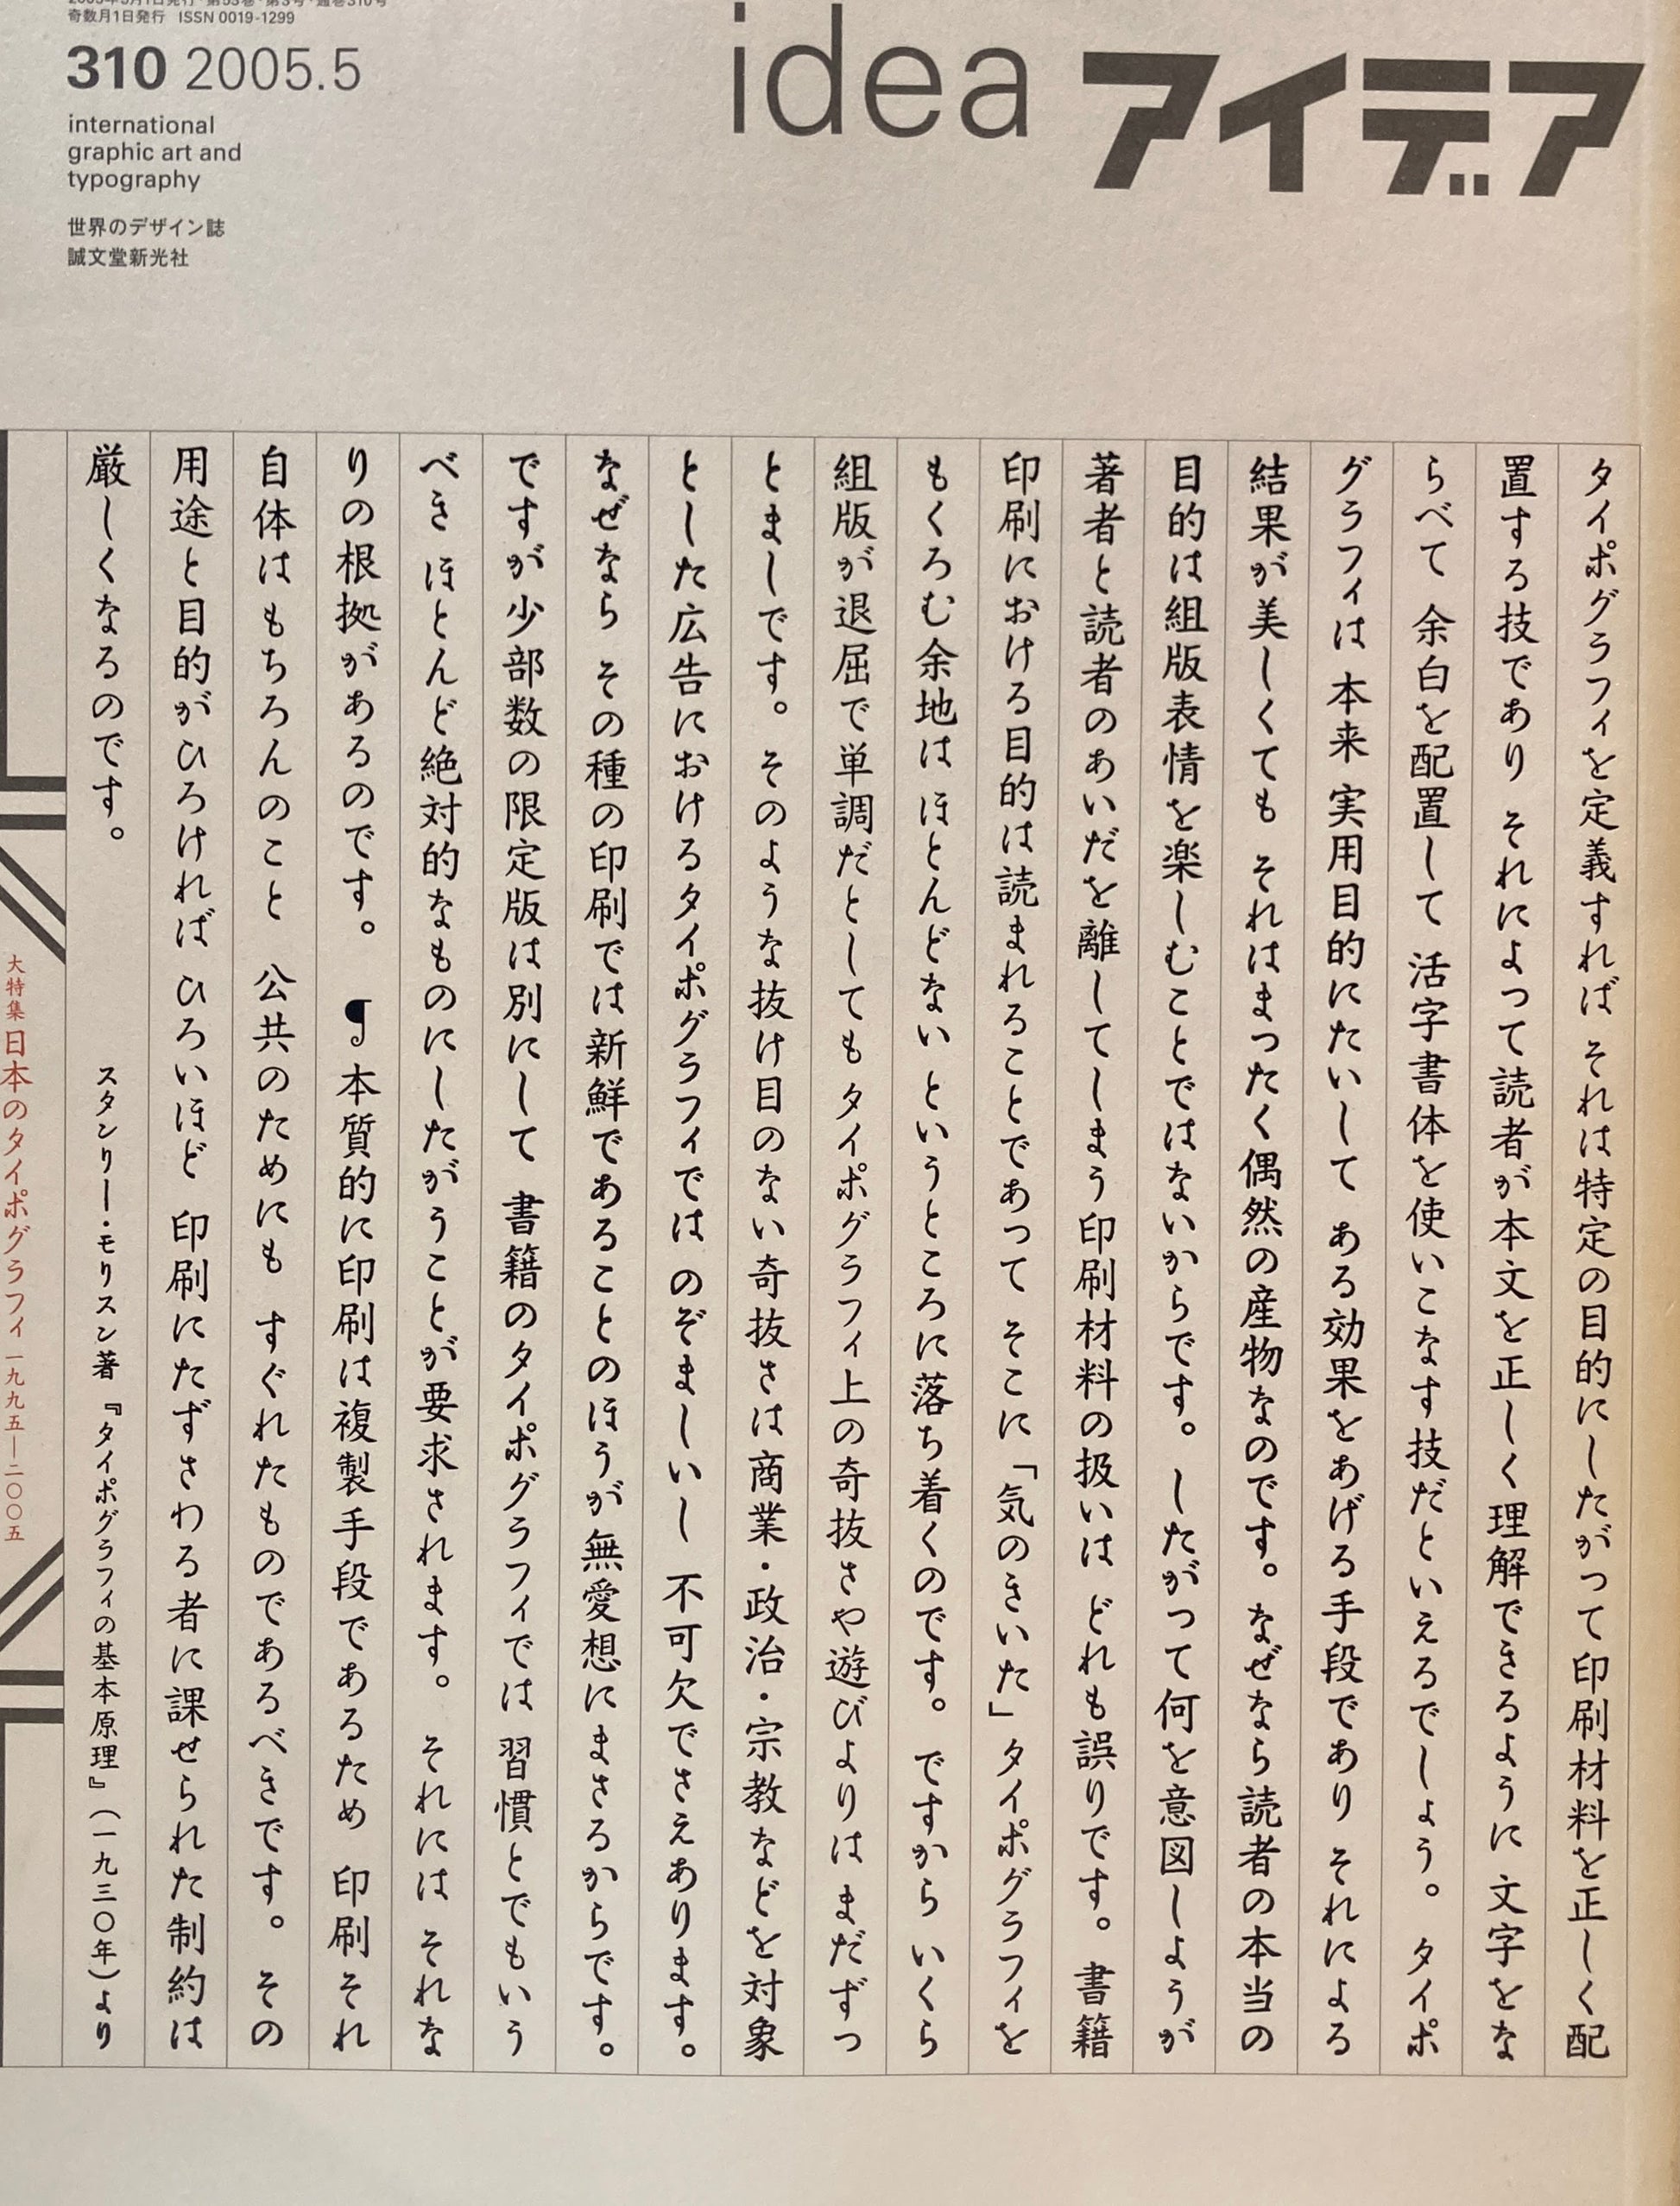 2005年5月1日発行・第53巻・第3号・通巻310号
奇数月1日発行 ISSN 0019-1299
310 2005.5
international
graphic art and
typography
世界のデザイン誌
誠文堂新光社
idea アイデア
タイポグラフィを定義すれば それは特定の目的にしたがって印刷材料を正しく配
置する技であり それによって読者が本文を正しく理解できるように 文字をな
らべて 余白を配置して 活字書体を使いこなす技だといえるでしょう。 タイポ
グラフィは 本来 実用目的にたいして ある効果をあげる手段であり それによる
結果が美しくても それはまったく偶然の産物なのです。なぜなら読者の本当の
目的は組版表情を楽しむことではないからです。 したがって何を意図しようが
著者と読者のあいだを離してしまう印刷材料の扱いは どれも誤りです。書籍
印刷における目的は読まれることであって そこに「気のきいた」タイポグラフィを
もくろむ余地は ほとんどない というところに落ち着くのです。 ですから いくら
組版が退屈で単調だとしても タイポグラフィ上の奇抜さや遊びよりは まだずっ
とましです。そのような抜け目のない奇抜さは商業・政治・宗教などを対象
とした広告におけるタイポグラフィでは のぞましいし 不可欠でさえあります。
なぜなら その種の印刷では新鮮であることのほうが無愛想にまさるからです。
ですが少部数の限定版は別にして 書籍のタイポグラフィでは 習慣とでもいう
べき ほとんど絶対的なものにしたがうことが要求されます。 それには それな
りの根拠があるのです。 ¶本質的に印刷は複製手段であるため 印刷それ
自体は もちろんのこと 公共のためにも すぐれたものであるべきです。 その
用途と目的がひろければ ひろいほど 印刷にたずさわる者に課せられた制約は
厳しくなるのです。
スタンリー・モリスン著『タイポグラフィの基本原理』(一九三〇年)より
大特集 日本のタイポグラフィ 一九九五―二〇〇五